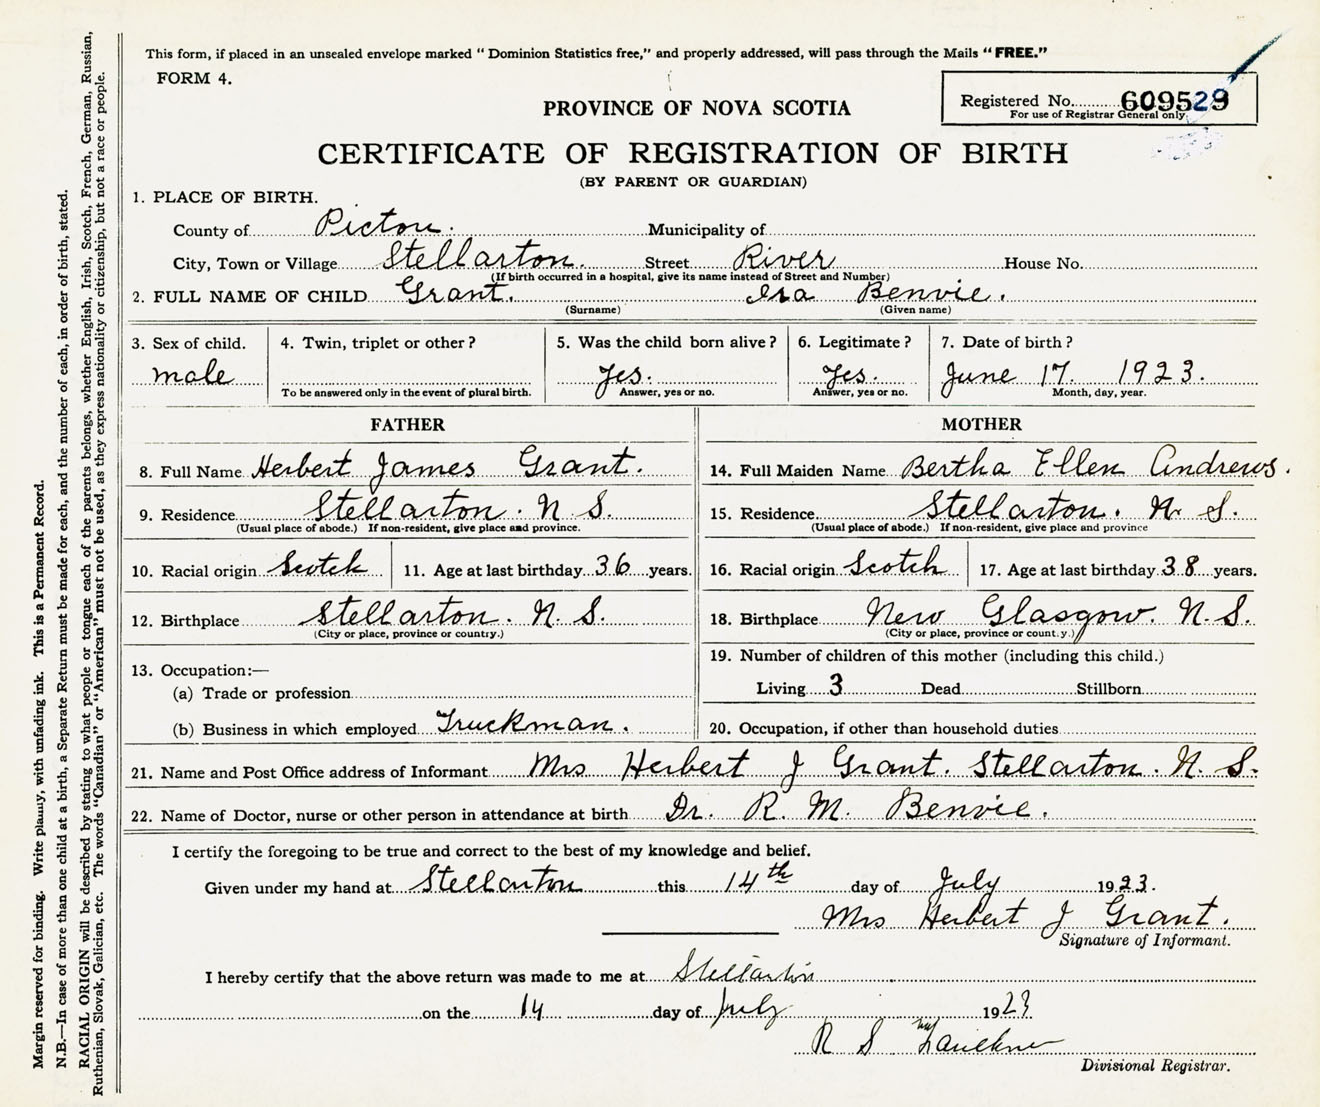 This form, if placed in an unsealed envelope marked " Dominion Statistics free," and properly addressed, will pass through the Mails " FREE."
FORM 4.
Registered No. 609529
For use of Registrar General only
PROVINCE OF NOVA SCOTIA
CERTIFICATE OF REGISTRATION OF BIRTH
(BY PARENT OR GUARDIAN)
1. PLACE OF BIRTH.
County of Pictou. Municipality of
City, Town or Village Stellarton. Street River House No.
(If birth occurred in a hospital, give its name instead of Street and Number)
2. FULL NAME OF CHILD Grant. Ira Benvie.
(Surname) (Given name)
3. Sex of child. 4. Twin, triplet or other? 5. Was the child born alive? 6. Legitimate? 7. Date of birth?
male Yes. Yes. June 17. 1923.
To be answered only in the event of plural birth. Answer, yes or no. Answer, yes or no. Month, day, year.
FATHER MOTHER
8. Full Name Herbert James Grant. 14. Full Maiden Name Bertha Ellen Andrews.
9. Residence Stellarton. N. S. 15. Residence Stellarton. N. S.
(Usual place of abode.) If non-resident, give place and province. (Usual place of abode.) If non-resident, give place and province
10. Racial origin Scotch 11. Age at last birthday 36 years. 16. Racial origin Scotch 17. Age at last birthday 38 years.
12. Birthplace Stellarton. N. S. 18. Birthplace New Glasgow. N. S.
(City or place, province or country.) (City or place, province or country.)
13. Occupation:— 19. Number of children of this mother (including this child.)
(a) Trade or profession Living 3 Dead Stillborn
(b) Business in which employed Truckman. 20. Occupation, if other than household duties
21. Name and Post Office address of Informant Mrs Herbert J Grant. Stellarton. N. S.
22. Name of Doctor, nurse or other person in attendance at birth Dr. R. M. Benvie.
I certify the foregoing to be true and correct to the best of my knowledge and belief.
Given under my hand at Stellarton this 14th day of July 1923.
Mrs Herbert J Grant.
Signature of Informant.
I hereby certify that the above return was made to me at Stellarton
on the 14 day of July 1923
R S Faulkner
Divisional Registrar.
Margin reserved for binding. Write plainly, with unfading ink. This is a Permanent Record.
N.B.—In case of more than one child at a birth, a Separate Return must be made for each, and the number of each, in order of birth, stated.
RACIAL ORIGIN will be described by stating to what people or tongue each of the parents belongs, whether English, Irish, Scotch, French, German, Russian,
Ruthenian, Slovak, Galician, etc. The words "Canadian" or "American" must not be used, as they express nationality or citizenship, but not a race or people.